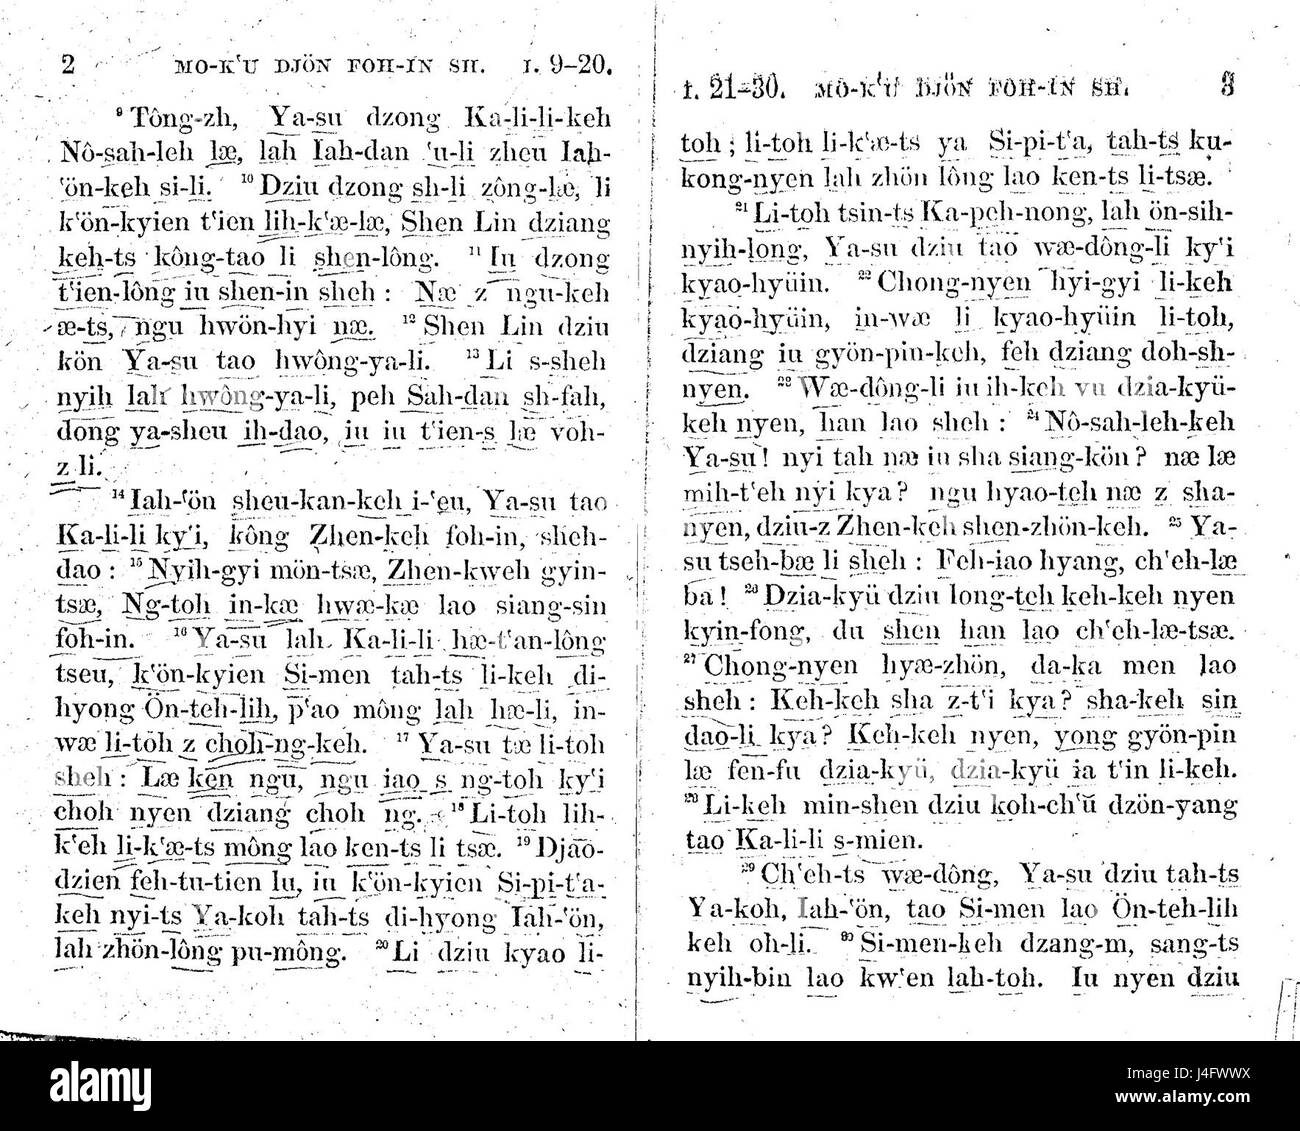 2 MO-K‘U DJÖN FOH-IN SH. I. 9–20.
⁹ Tông-zh, Ya-su dzong Ka-li-li-keh
Nô-sah-leh læ, lah Iah-dan ‘u-li zheu Iah-
‘ön-keh si-li. ¹⁰ Dziu dzong sh-li zông-læ, li
k‘ön-kyien t‘ien lih-k‘æ-læ, Shen Lin dziang
keh-ts kông-tao li shen-lông. ¹¹ Iu dzong
t‘ien-lông iu shen-in sheh : Næ z ngu-keh
æ-ts, ngu hwön-hyi næ. ¹² Shen Lin dziu
kön Ya-su tao hwông-ya-li. ¹³ Li s-sheh
nyih lah hwông-ya-li, peh Sah-dan sh-fah,
dong ya-sheu ih-dao, iu iu t‘ien-s læ voh-
z li.
¹⁴ Iah-‘ön sheu-kan-keh i-‘eu, Ya-su tao
Ka-li-li ky‘i, kông Zhen-keh foh-in, sheh-
dao : ¹⁵ Nyih-gyi mön-tsæ, Zhen-kweh gyin-
tsæ, Ng-toh in-kæ hwæ-kæ lao siang-sin
foh-in. ¹⁶ Ya-su lah Ka-li-li hæ-t‘an-lông
tseu, k‘ön-kyien Si-men tah-ts li-keh di-
hyong Ön-teh-lih, p‘ao mông lah hæ-li, in-
wæ li-toh z choh-ng-keh. ¹⁷ Ya-su tæ li-toh
sheh : Læ ken ngu, ngu iao s ng-toh ky‘i
choh nyen dziang choh ng. ¹⁸ Li-toh lih-
k‘eh li-k‘æ-ts mông lao ken-ts li tsæ. ¹⁹ Djao-
dzien feh-tu-tien lu, iu k‘ön-kyien Si-pi-t‘a-
keh nyi-ts Ya-koh tah-ts di-hyong Iah-‘ön,
lah zhön-lông pu-mông. ²⁰ Li dziu kyao li-
I. 21–30. MO-K‘U DJÖN FOH-IN SH. 3
toh ; li-toh li-k‘æ-ts ya Si-pi-t‘a, tah-ts ku-
kong-nyen lah zhön lông lao ken-ts li-tsæ.
²¹ Li-toh tsin-ts Ka-peh-nong, lah ön-sih-
nyih-long, Ya-su dziu tao wæ-dông-li ky‘i
kyao-hyüin. ²² Chong-nyen hyi-gyi li-keh
kyao-hyüin, in-wæ li kyao-hyüin li-toh,
dziang iu gyön-pin-keh, feh dziang doh-sh-
nyen. ²³ Wæ-dông-li iu ih-keh vu dzia-kyü-
keh nyen, han lao sheh : ²⁴ Nô-sah-leh-keh
Ya-su ! nyi tah næ iu sha siang-kön ? næ læ
mih-t‘eh nyi kya ? ngu hyao-teh næ z sha-
nyen, dziu-z Zhen-keh shen-zhön-keh. ²⁵ Ya-
su tseh-bæ li sheh : Feh-iao hyang, ch‘eh-læ
ba ! ²⁶ Dzia-kyü dziu long-teh keh-keh nyen
kyin-fong, du shen han lao ch‘eh-læ-tsæ.
²⁷ Chong-nyen hyæ-zhön, da-ka men lao
sheh : Keh-keh sha z-t‘i kya ? sha-keh sin
dao-li kya ? Keh-keh nyen, yong gyön-pin
læ fen-fu dzia-kyü, dzia-kyü ia t‘in li-keh.
²⁸ Li-keh min-shen dziu koh-ch‘ü dzön-yang
tao Ka-li-li s-mien.
²⁹ Ch‘eh-ts wæ-dông, Ya-su dziu tah-ts
Ya-koh, Iah-‘ön, tao Si-men lao Ön-teh-lih
keh oh-li. ³⁰ Si-men-keh dzang-m, sang-ts
nyih-bin lao kw‘en lah-toh. Iu nyen dziu
alamy
alamy
Image ID: J4FWWX
www.alamy.com